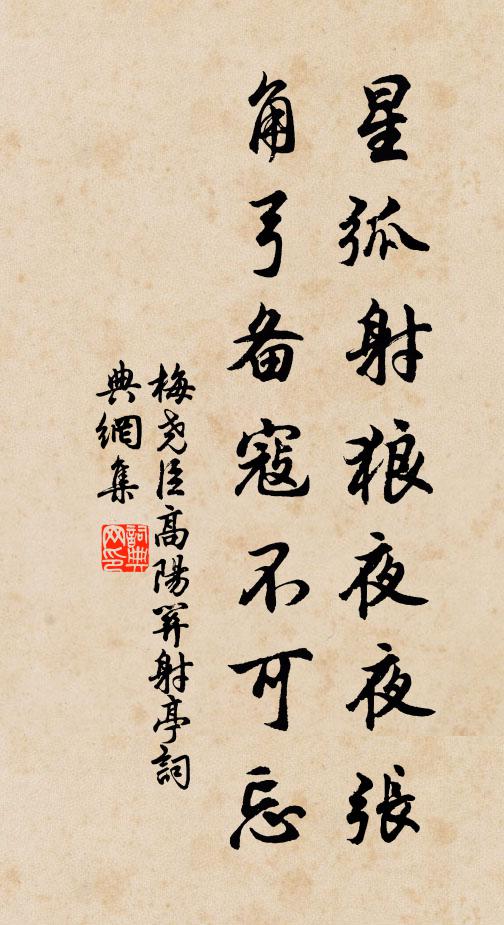 星弧射狼夜夜張
角弓备寇不可忘
梅尧臣高陽關射亭詞
典網集
詞典网印